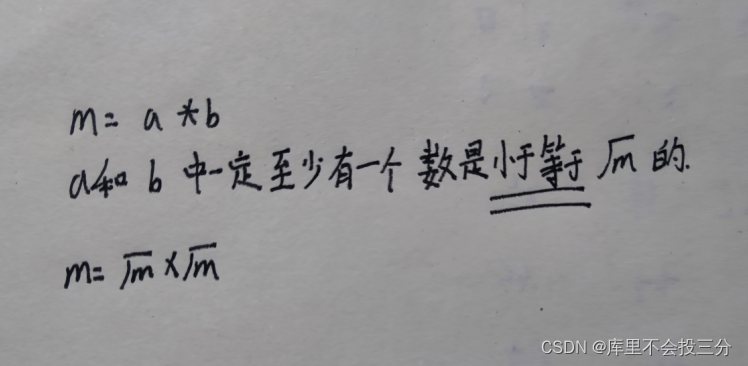 m= a *b
a和 b 中一定至少有一个 数是小于等于 √m 的.
m= √m ×√m
CSDN @库里不会投三分